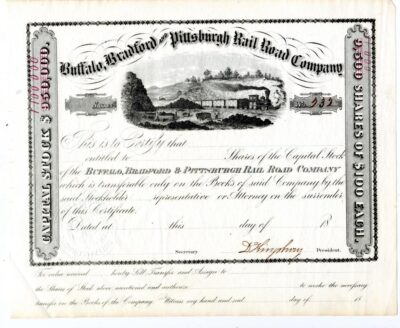 Buffalo, Bradford and Pittsburgh Rail Road Company
CAPITAL STOCK $
9,500 SHARES OF $100 EACH.
No. 332
This is to Certify that
entitled to Shares of the Capital Stock
of the BUFFALO, BRADFORD & PITTSBURGH RAIL ROAD COMPANY
which is transferable only on the Books of said Company by the
said Stockholder representative or Attorney on the surrender
of this Certificate.
Dated at this day of 18
Secretary President.
For value received hereby Sell, Transfer and Assign to
the Shares of Stock above mentioned and authorize to make the necessary
transfer on the Books of the Company. Witness my hand and seal day of 18